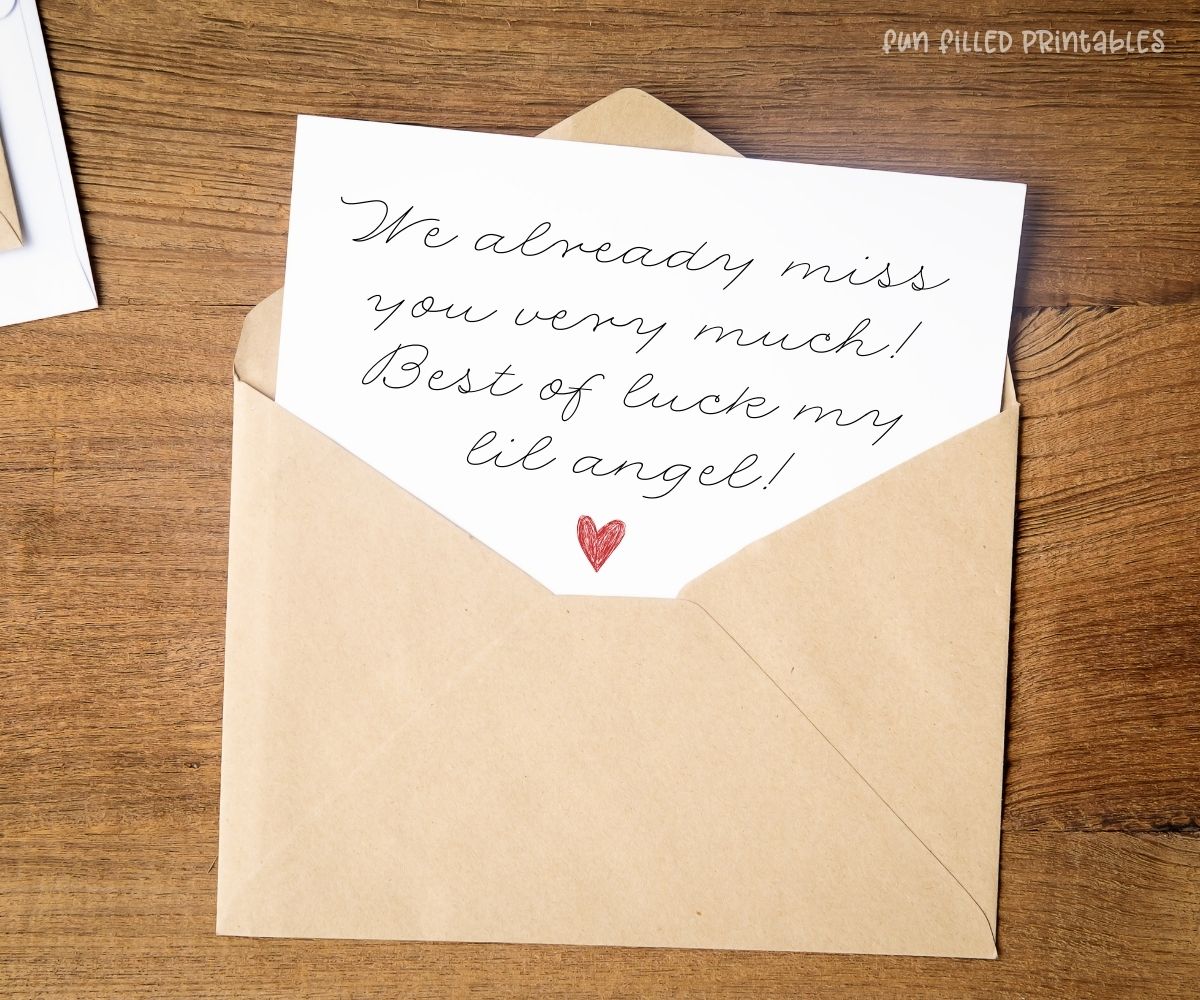 fun filled printables
We already miss
you very much!
Best of luck my
lil angel!